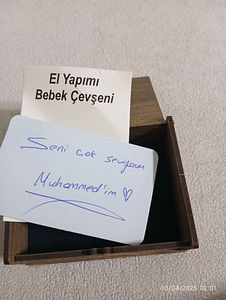 El Yapımı
Bebek Çevşeni
Seni çok seviyorum
Muhammed'im ♡
10/04/2025 02:01